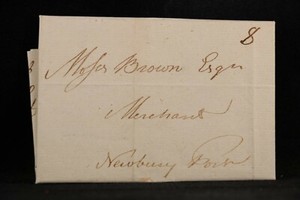 8
Moses Brown Esqr
Merchant
Newbury Port